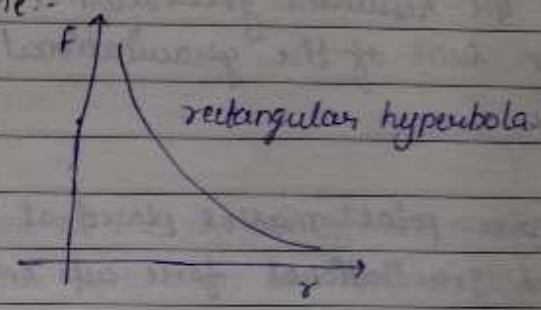 F
rectangular hyperbola
r